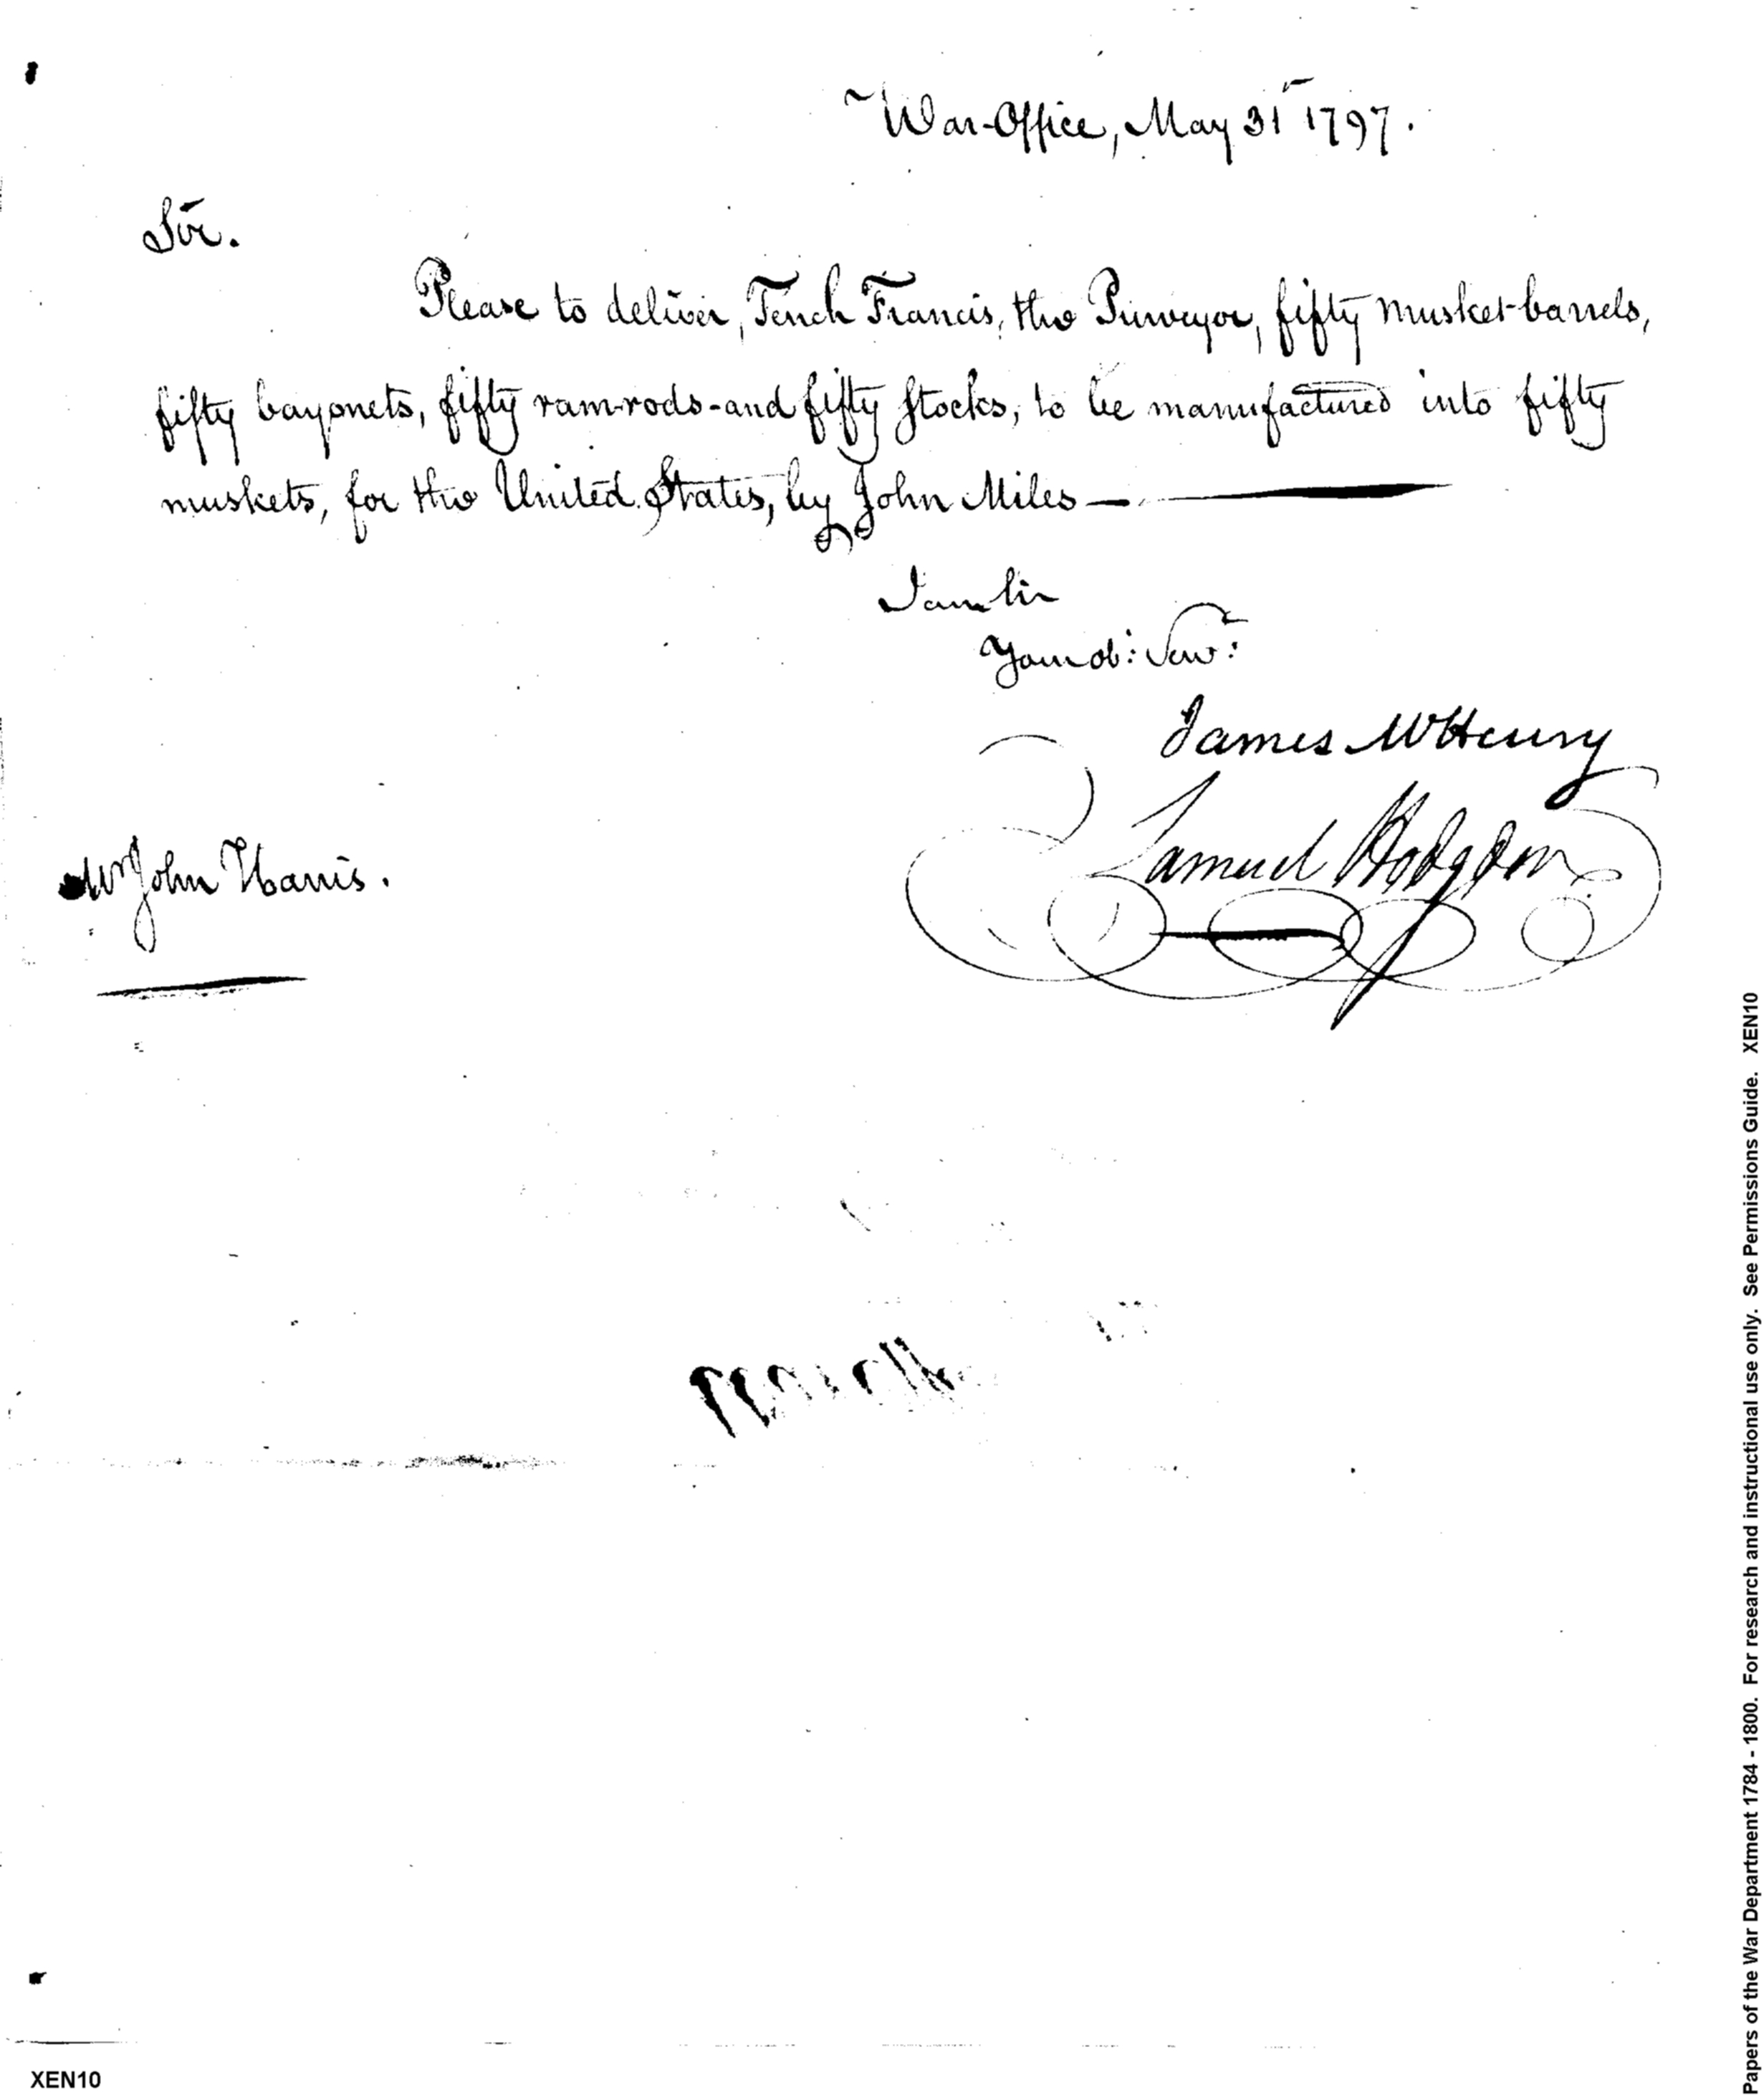 War-Office, May 31 1797.
Sir.
Please to deliver, Tench Francis, the Purveyor, fifty musket-barrels,
fifty bayonets, fifty ram-rods-and fifty stocks, to be manufactured into fifty
muskets, for the United States, by John Miles —
I am Sir
Your ob: Serv:
James McHenry
Samuel Hodgdon
Mr John Harris.
XEN10
Papers of the War Department 1784 - 1800. For research and instructional use only. See Permissions Guide. XEN10